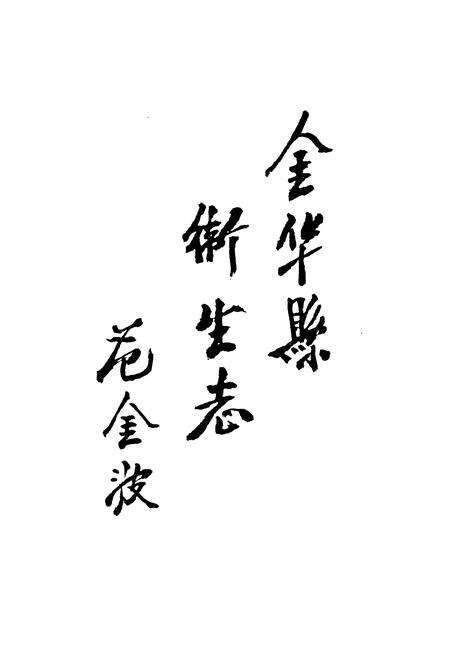 金华縣
衛生志
范金波